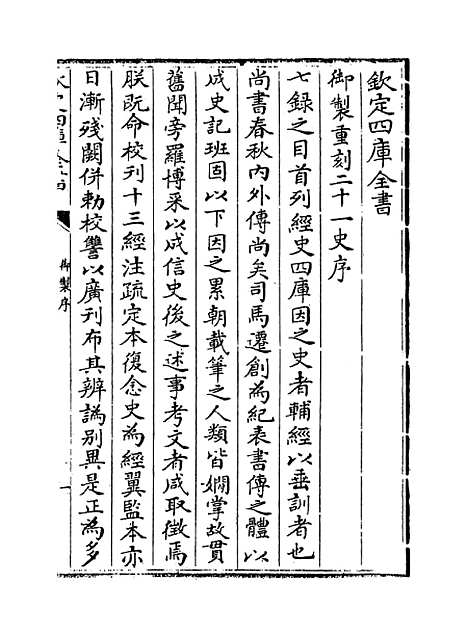 欽定四庫全書
御製重刻二十一史序
七錄之目首列經史四庫因之史者輔經以垂訓者也
尚書春秋內外傳尚矣司馬遷創為紀表書傳之體以
成史記班固以下因之累朝載筆之人類皆嫺掌故貫
舊聞旁羅博采以成信史後之述事考文者咸取徵焉
朕既命校刊十三經注疏定本復念史為經翼監本亦
日漸殘闕併勅校讐以廣刊布其辨譌別異是正為多
御製序
一